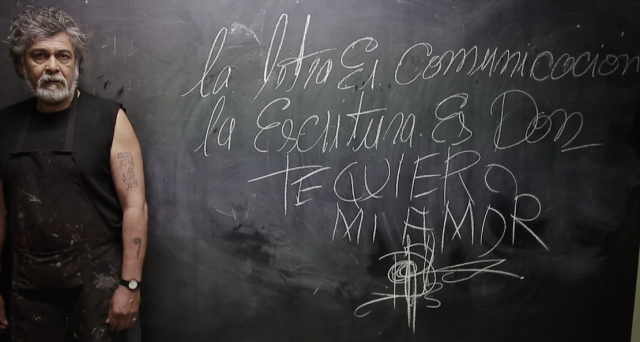 la letra Es Comunicación
la Escritura. Es Don
TE QUIERO
MI AMOR